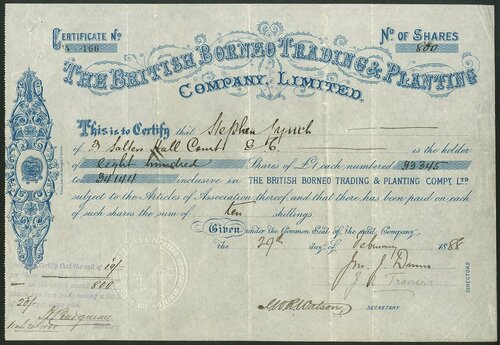 CERTIFICATE No
166
No OF SHARES
800
THE BRITISH BORNEO TRADING & PLANTING
COMPANY, LIMITED.
This is to Certify that Stephen Lynch
of 3 Salters Hall Court E C is the holder
of eight hundred Shares of £1 each numbered 33345
to 34144 inclusive in THE BRITISH BORNEO TRADING & PLANTING COMPY, LTD
subject to the Articles of Association thereof, and that there has been paid on each
of such shares the sum of ten shillings.
Given under the Common Seal of the said Company
The 29th day of February 1888
Travers
W R Watson SECRETARY
DIRECTORS
certify that the call of
800